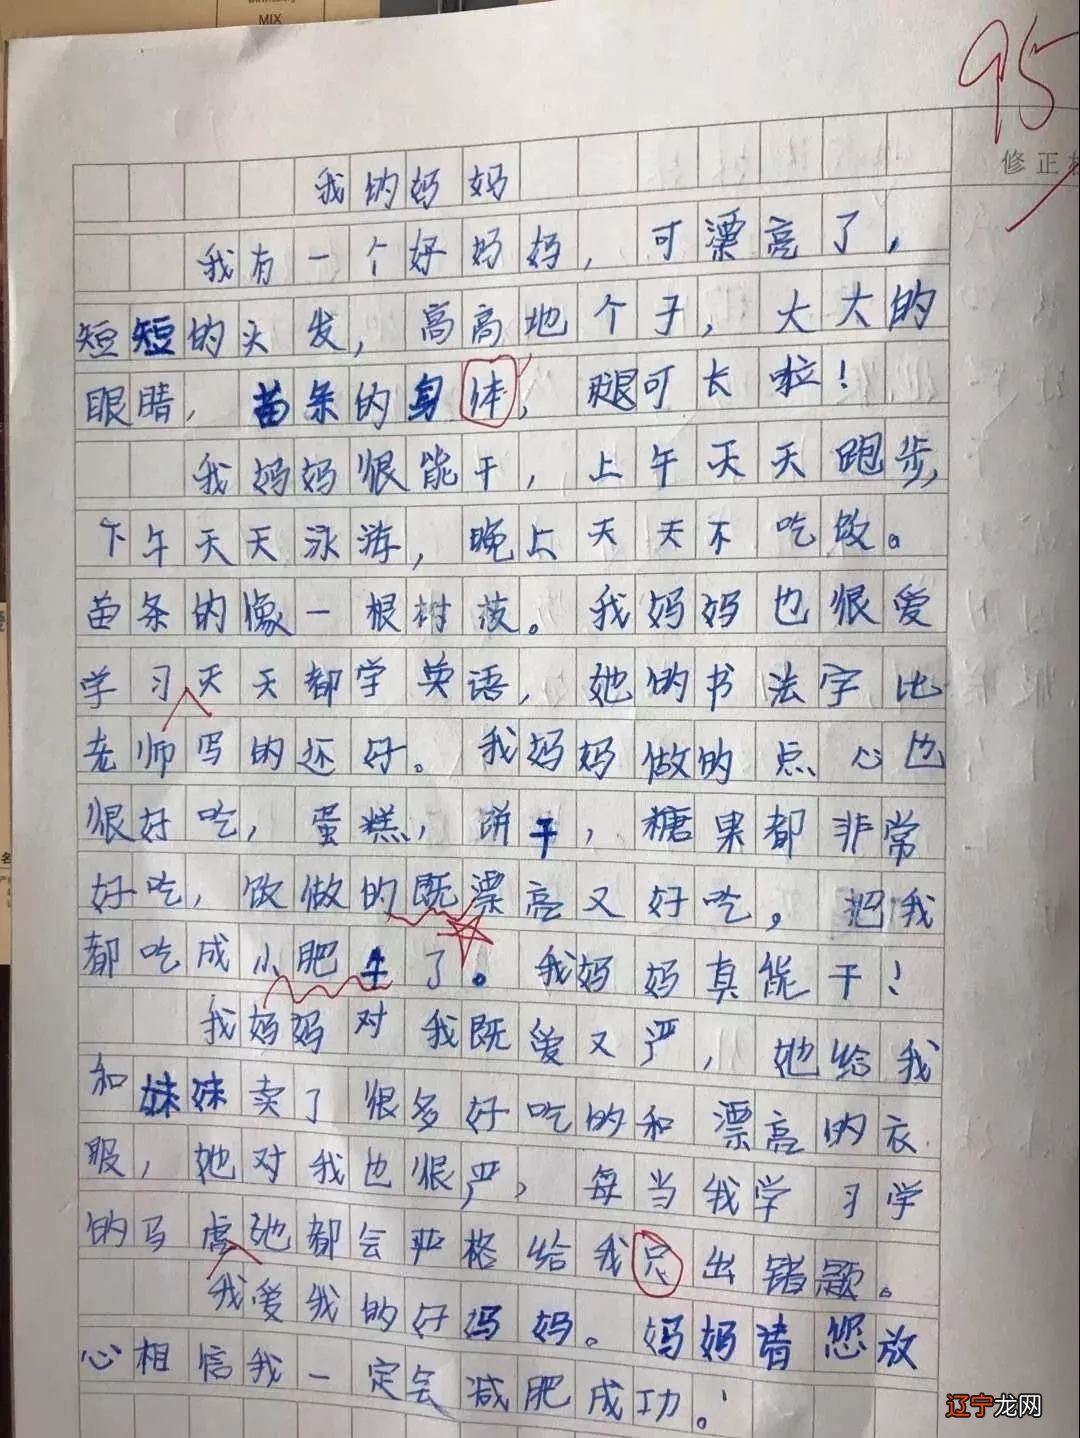 MIX
95
修正
我的妈妈
我有一个好妈妈，可漂亮了，
短短的头发，高高地个子，大大的
眼睛，苗条的身体，腿可长啦！
我妈妈很能干，上午天天跑步，
下午天天泳游，晚上天天不吃饭。
苗条的像一根树枝。我妈妈也很爱
学习天天都学英语，她的书法字比
老师写的还好。我妈妈做的点心也
很好吃，蛋糕，饼干，糖果都非常
好吃，饭做的既漂亮又好吃，把我
都吃成小肥牛了。我妈妈真能干！
我妈妈对我既爱又严，她给我
和妹妹卖了很多好吃的和漂亮的衣
服，她对我也很严，每当我学习学
的马虎她都会严格给我 出错题。
我爱我的好妈妈。妈妈请您放
心相信我一定会减肥成功。！
辽宁龙网